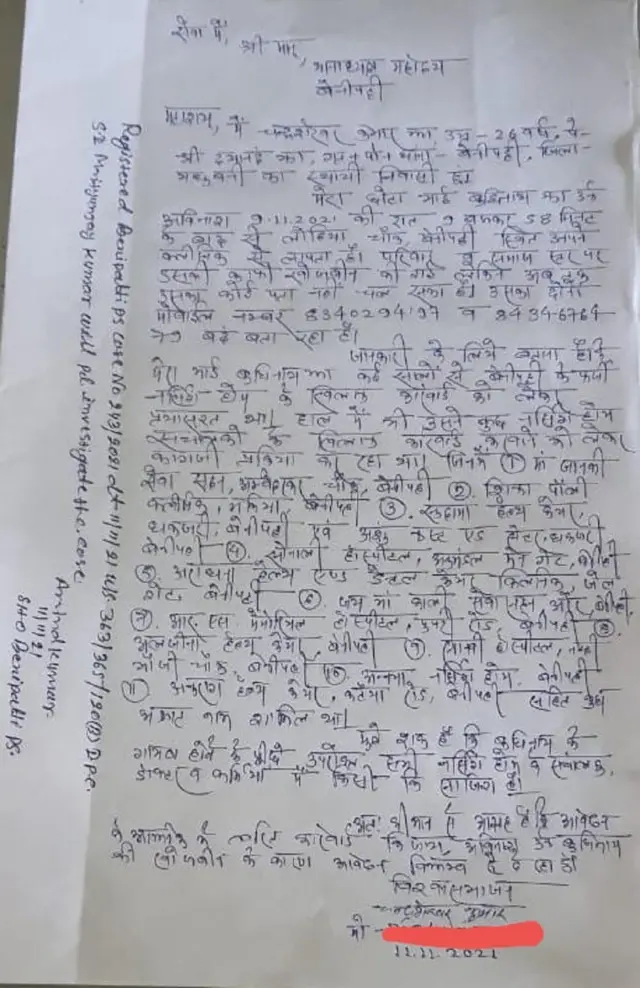 सेवा में,
श्री मान,
थानाध्यक्ष महोदय
बेनीपट्टी
महाशय, मैं चन्द्रशेखर कुमार झा, उम्र - 26 वर्ष, पे-
श्री दयानंद झा, ग्राम पोस्ट थाना - बेनीपट्टी, जिला-
मधुबनी का स्थायी निवासी हूं
मेरा छोटा भाई बुद्धिनाथ झा उर्फ
अविनाश 9.11.2021 की रात 9 बजकर 58 मिनट
के बाद से लोहिया चौक बेनीपट्टी स्थित अपने
क्लीनिक से लापता है। परिवार व समाज स्तर पर
उसकी काफी खोजबीन की गई लेकिन अब तक
इसका कोई पता नहीं चल सका है। उसका दोनों
मोबाइल नम्बर 8340294197 व 8434-6764
79 बंद बता रहा है।
जानकारी के लिये बताना है कि
मेरा भाई बुद्धिनाथ झा कई सालों से बेनीपट्टी के फर्जी
नर्सिंग होम के खिलाफ कारवाई को लेकर
प्रयासरत था। हाल में भी उसने कुछ नर्सिंग होम
संचालकों के खिलाफ कारवाई करवाने को लेकर
कागजी प्रक्रिया कर रहा था। जिनमें (1) मां जानकी
सेवा सदन, अम्बेडकर चौक, बेनीपट्टी (2). शिवा पॉली
क्लीनिक, मकिया, बेनीपट्टी (3). सुदामा हेल्थ केयर,
धकजरी, बेनीपट्टी एवं
बेनीपट्टी (4). सोनाली हॉस्पीटल, अनुमंडल मेन गेट, बेनीपट्टी
(5). आराधना हेल्थ एण्ड डेन्टल केयर क्लिनिक जेल
गेट, बेनीपट्टी (6). जय मां काली सेवा सदन
(7). आर एस मेमोरियल हॉस्पीटल, रोड, बेनीपट्टी (8).
हेल्थ केयर, बेनीपट्टी (9). सान्वी हॉस्पीटल, नन्दी
भौजी चौक, बेनीपट्टी (10). अनन्या नर्सिंग होम, बेनीपट्टी
(11) अनुराग हेल्थ केयर, कटैया रोड, बेनीपट्टी सहित कुछ
नाम शामिल था।
मुझे शक है कि बुद्धिनाथ के
गायब होने के पीछे उपरोक्त सभी नर्सिंग होम के संचालक,
डॉक्टर व कर्मियों में किसी कि साजिश है।
अतः श्रीमान से आग्रह है कि आवेदन
के आलोक में त्वरित कारवाई कि जाय, अविनाश उर्फ बुद्धिनाथ
की खोजबीन के कारण आवेदन विलम्ब से दे रहा हूं।
विश्वासभाजन
चन्द्रशेखर कुमार
मो -
11.11.2021
Registered Benipatti PS case No 243/2021 dt 11/11/21 U/S 363/365/120(B) IPC.
SI Mrityunjay Kumar will pl. investigate the case.
Arvind Kumar
11/11/21
SHO Benipatti PS.